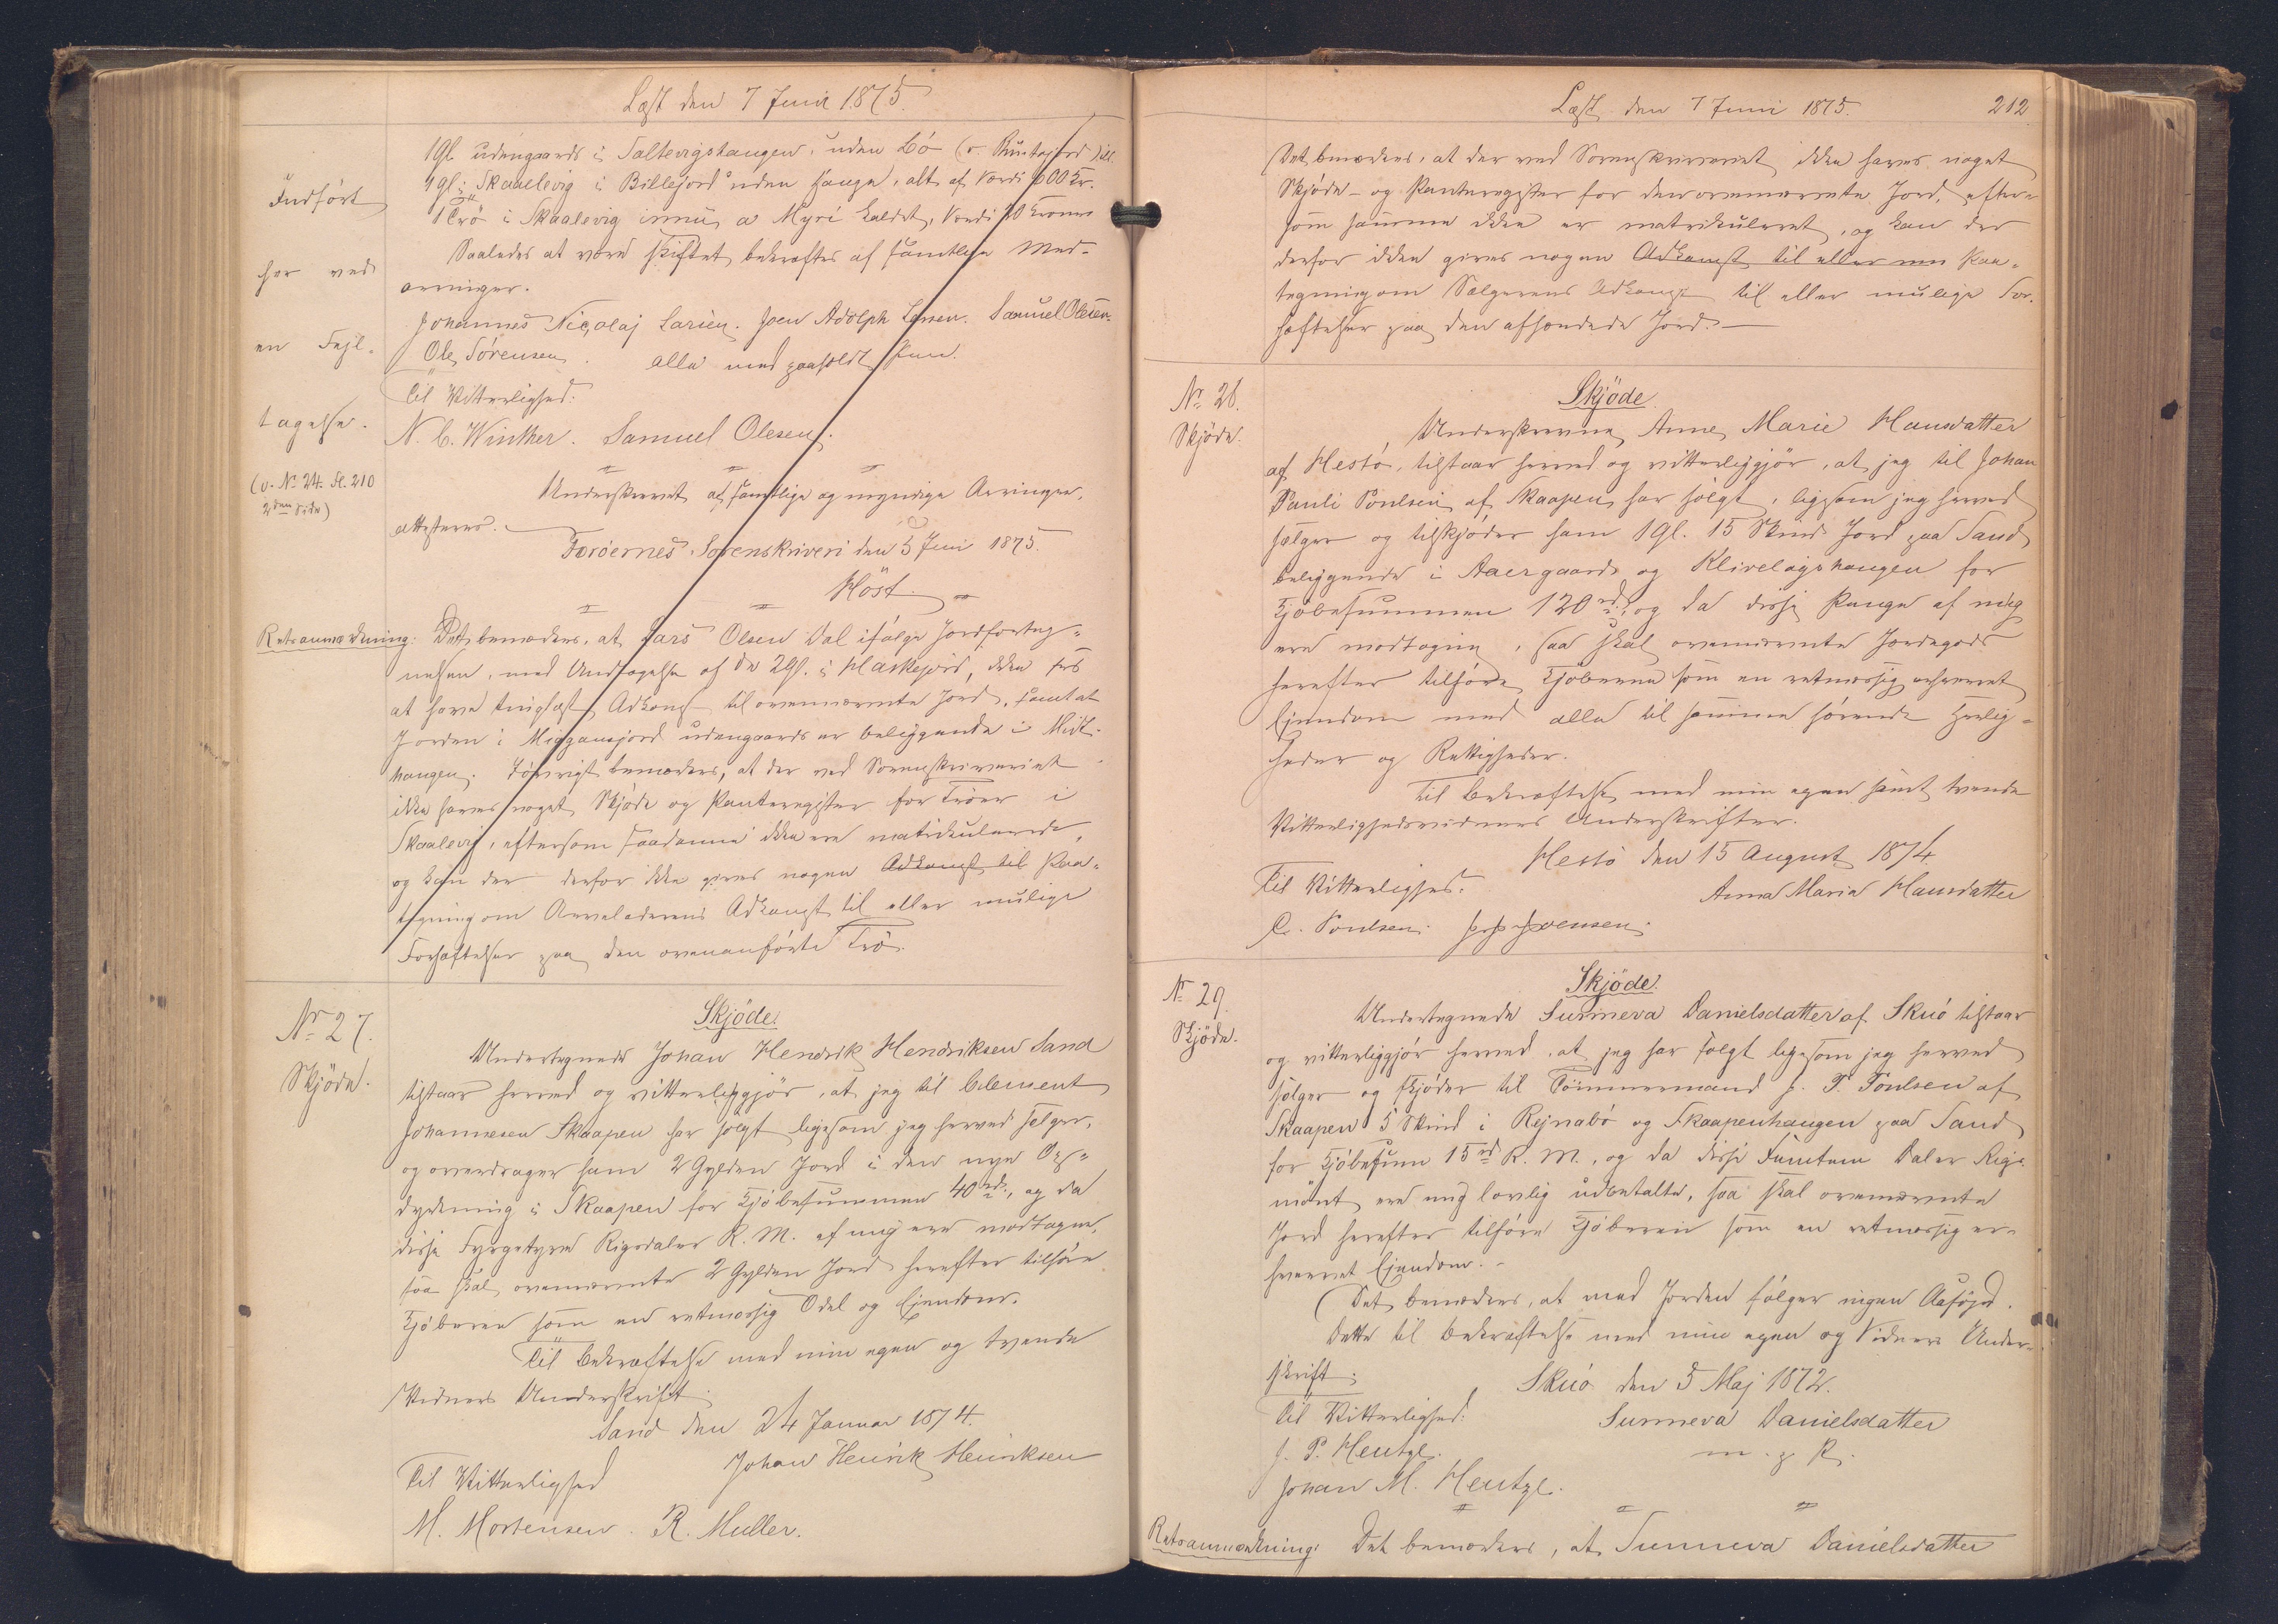 Læst den 7 Juni 1875.
1 gl udengaards i Saltevigshaugen, uden bö
1 gl: i Skaalevig i Billejord uden Hauge, alt af Værdi 600 Kr.
1 Trö i Skaalevig innú, á Myri kaldet, Værdi 20 Kroner
Saaledes at være skiftet bekræftes af samtlige Med-
arvinger.
Johannes Nicolaj Larsen. Joen Adolph Larsen. Samuel Olesen.
Ole Sörensen. alle med paaholdt Pen.
Til Vitterlighed:
N. C. Winther. Samuel Olesen.
Indfört
her ved
en Fejl-
tagelse.
(v. No 24 Fl. 210
2den Side)
Underskrevet af samtlige og myndige Arvinger,
attesteres.
Færöernes Sorenskriveri den 5 Juni 1875.
Höst.
Retsanmærkning: Det bemærkes, at Lars Olsen Dal ifölge Jordforteg-
nelsen, med Undtagelse af de 2 gl. i Haskejord, ikke ses
at have tinglæst Adkomst til ovennævnte Jord, samt at
Jorden i Miggansjord udengaards er beliggende i Midt-
haugen. Forövrigt bemærkes, at der ved Sorenskriveriet
ikke haves noget Skjöde og Panteregister for Tröer i
Skaalevig, eftersom saadanne ikke ere matrikulerede,
og kan der derfor ikke gives nogen Adkomst til Paa-
tegning om Arveladerens Adkomst til eller mulige
Forhæftelser paa den ovenanförte Trö.
No 27.
Skjöde.
Skjöde.
Undertegnede Johan Hendrik Hendriksen Sand
tilstaar herved og vitterliggjör, at jeg til Clement
Johannesen Skaapen har solgt ligesom jeg herved sælger,
og overdrager ham 2 Gylden Jord i den nye Op-
dyrkning i Skaapen for Kjöbesummen 40 rd., og da
disse Fyrgetyve Rigsdaler R. M. af mig ere modtagne,
saa skal ovennævnte 2 Gylden Jord herefter tilhöre
Kjöberen som en retmæssig Odel og Ejendom.
Til Bekræftelse med min egen og tvende
Vidners Underskrift.
Sand den 24 Januar 1874.
Johan Henrik Henriksen
Til Vitterlighed
M. Mortensen. R. Muller.
Læst den 7 Juni 1875.
212
Det bemærkes, at der ved Sorenskriveriet ikke haves noget
Skjöde- og Panteregister for den ovennævnte Jord, efter-
som samme ikke er matrikuleret, og kan der
derfor ikke gives nogen Adkomst til eller Paa-
tegning om Sælgerens Adkomst til eller mulige For-
hæftelser paa den afhændede Jord.
No 28.
Skjöde.
Skjöde
Underskrevne Anne Marie Hansdatter
af Hestö, tilstaar herved og vitterliggjör, at jeg til Johan
Pauli Poulsen af Skaapen har solgt, ligesom jeg herved
sælger og tilskjöder ham 1 gl. 15 Skind Jord paa Sand
beliggende i Aaergaard og Klivelagshaugen for
Kjöbesummen 120 rd, og da disse Penge af mig
ere modtagne, saa skal ovennævnte Jordegods
herefter tilhöre Kjöberen som en retmæssig erhvervet
Ejendom med alle til samme hörende Herlig-
heder og Rettigheder.
Til Bekræftelse med min egen samt tvende
Vitterlighedsvidners Underskrifter.
Hestö den 15 August 1874
Anna Maria Hansdatter
Til Vitterlighed.
C. Poulsen. Joensen.
No 29.
Skjöde.
Skjöde.
Undertegnede Sunneva Danielsdatter af Skuö tilstaar
og vitterliggjör herved, at jeg har solgt ligesom jeg herved
sælger og skjöder til Tömmermand J. P. Poulsen af
Skaapen 5 Skind i Rejnabö og Skaapenhaugen paa Sand
for Kjöbesum 15 rd R. M., og da disse Femten Daler Rigs-
mönt ere mig lovlig udbetalte, saa skal ovennævnte
Jord herefter tilhöre Kjöberen som en retmæssig er-
hvervet Ejendom.
Det bemærkes, at med Jorden fölger ingen Aahöfd.
Dette til Bekræftelse med min egen og Vidners Under-
skrift.
Skuö den 5 Maj 1872.
Til Vitterlighed:
Sunneva Danielsdatter
m. p. P.
J. P. Hentze.
Johan M. Hentze.
Retsanmærkning: Det bemærkes, at Sunneva Danielsdatter